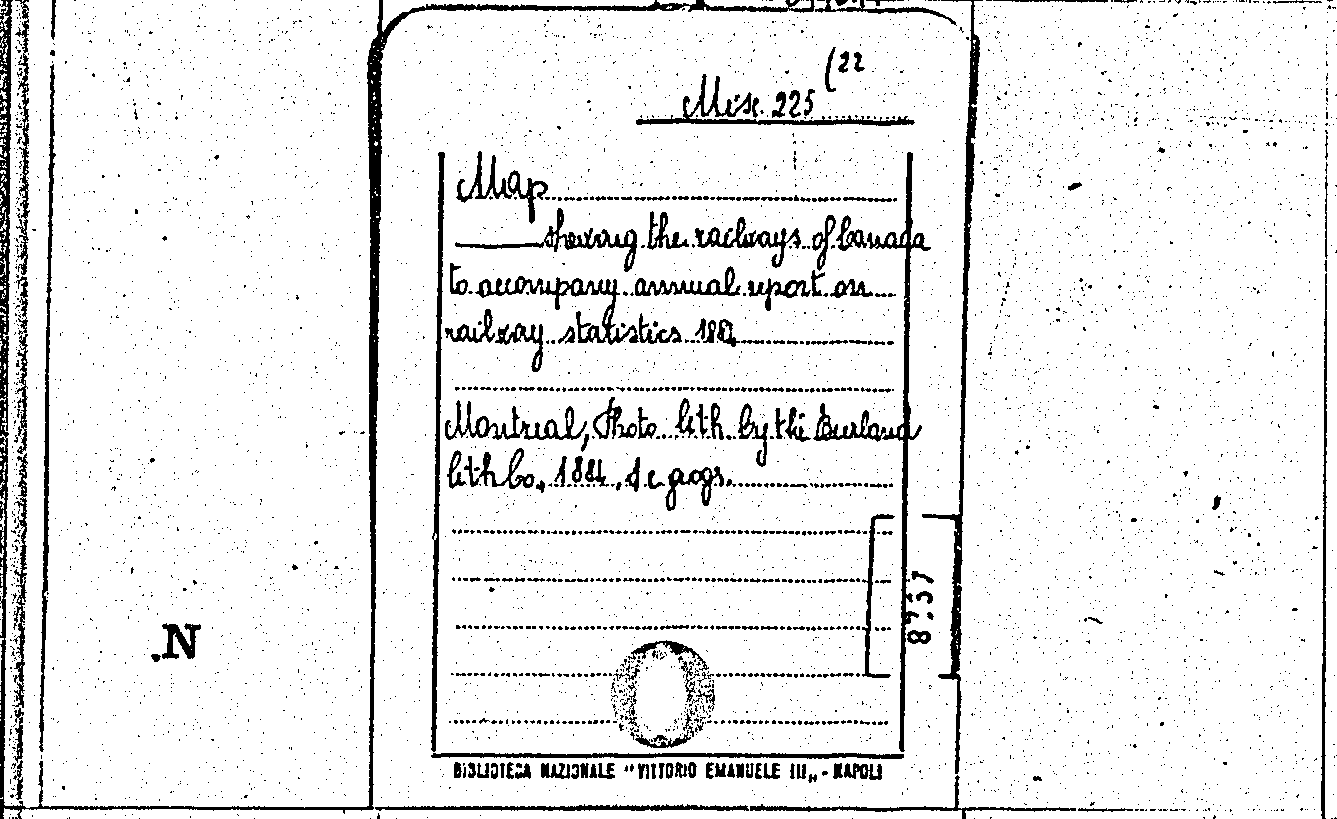 (22
Misc. 225
Map
showing the railways of Canada
to accompany annual report on
railway statistics 1884
Montreal, Photo lith by the Burland
lith Co., 1884, 1 c geogr.
8757
.N
BIBLIOTECA NAZIONALE "VITTORIO EMANUELE III„ - NAPOLI